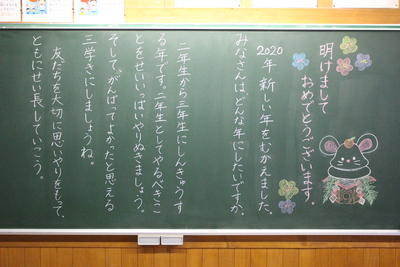 明けまして
おめでとうございます。
2020年 新しい年をむかえました。
みなさんは、どんな年にしたいですか。
二年生から三年生にしんきゅうす
る年です。二年生としてやるべきこ
とをせいいっぱいやりぬきましょう。
そして、がんばってよかったと思える
三学きにしましょうね。
友だちを大切に思いやりをもって、
ともにせい長していこう。